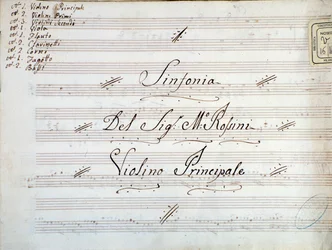 N.° 1. Violino Principale
N.° 2. Violini Primi
N.° 3. Violini Secondi
N.° 1. Viola
N.° 1. Flauto
N.° 2. Clarinetti
N.° 2. Corni
N.° 1. Fagotto
N.° 2. Bassi
Sinfonia
Del Sig.r M.o Rossini
Violino Principale